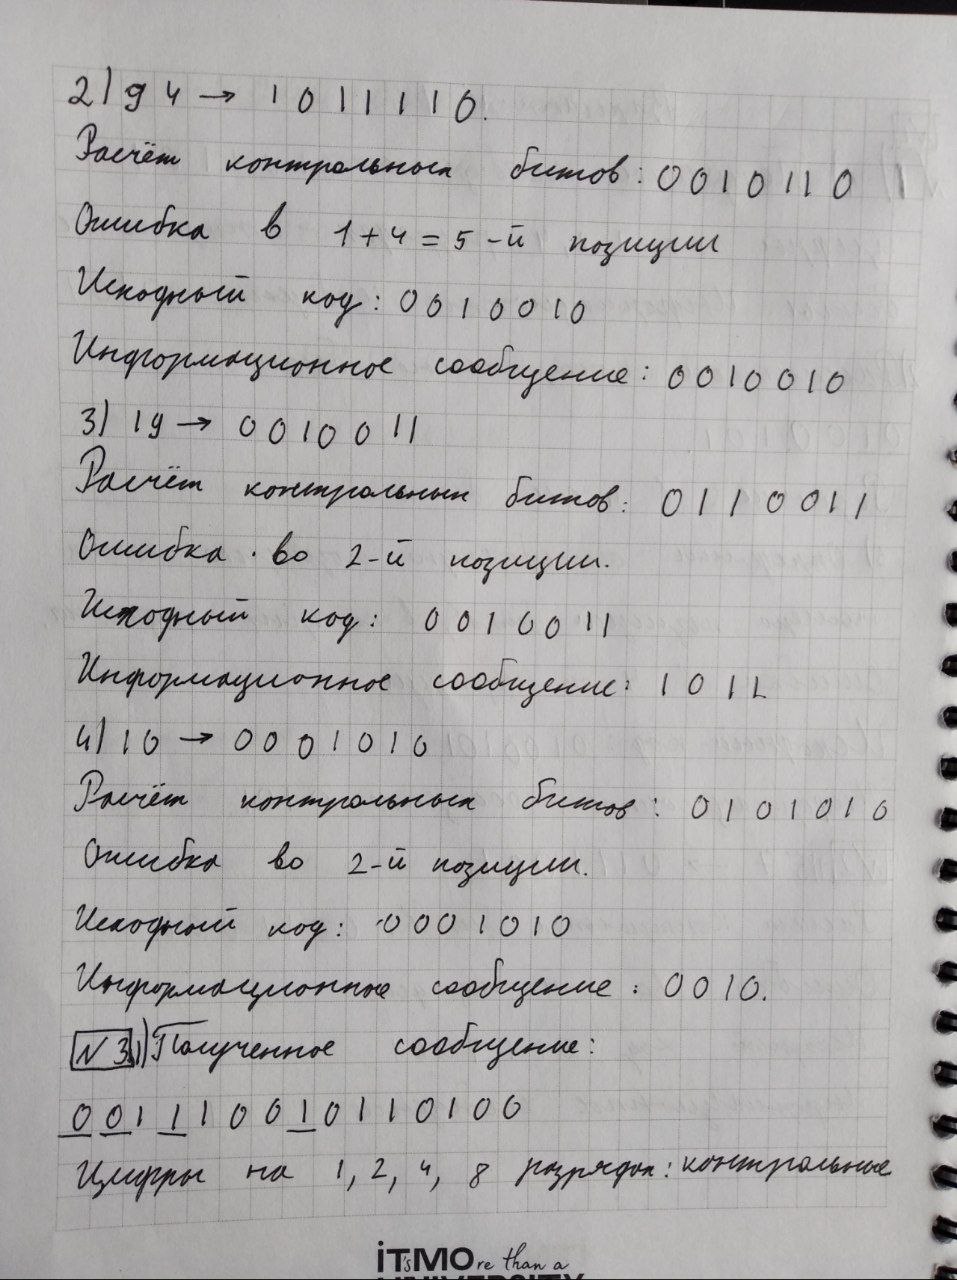 2) 94 → 1011110.
Расчёт контрольных битов: 0010110
Ошибка в 1+4=5-й позиции
Исходный код: 0010010
Информационное сообщение: 0010010
3) 19 → 0010011
Расчёт контрольных битов: 0110011
Ошибка во 2-й позиции.
Исходный код: 0010011
Информационное сообщение: 1011
4) 10 → 0001010
Расчёт контрольных битов: 0101010
Ошибка во 2-й позиции.
Исходный код: 0001010
Информационное сообщение: 0010.
№3 1) Полученное сообщение:
001110010110100
Цифры на 1, 2, 4, 8 разрядах: контрольные
it'sMOre than a
UNIVERSITY